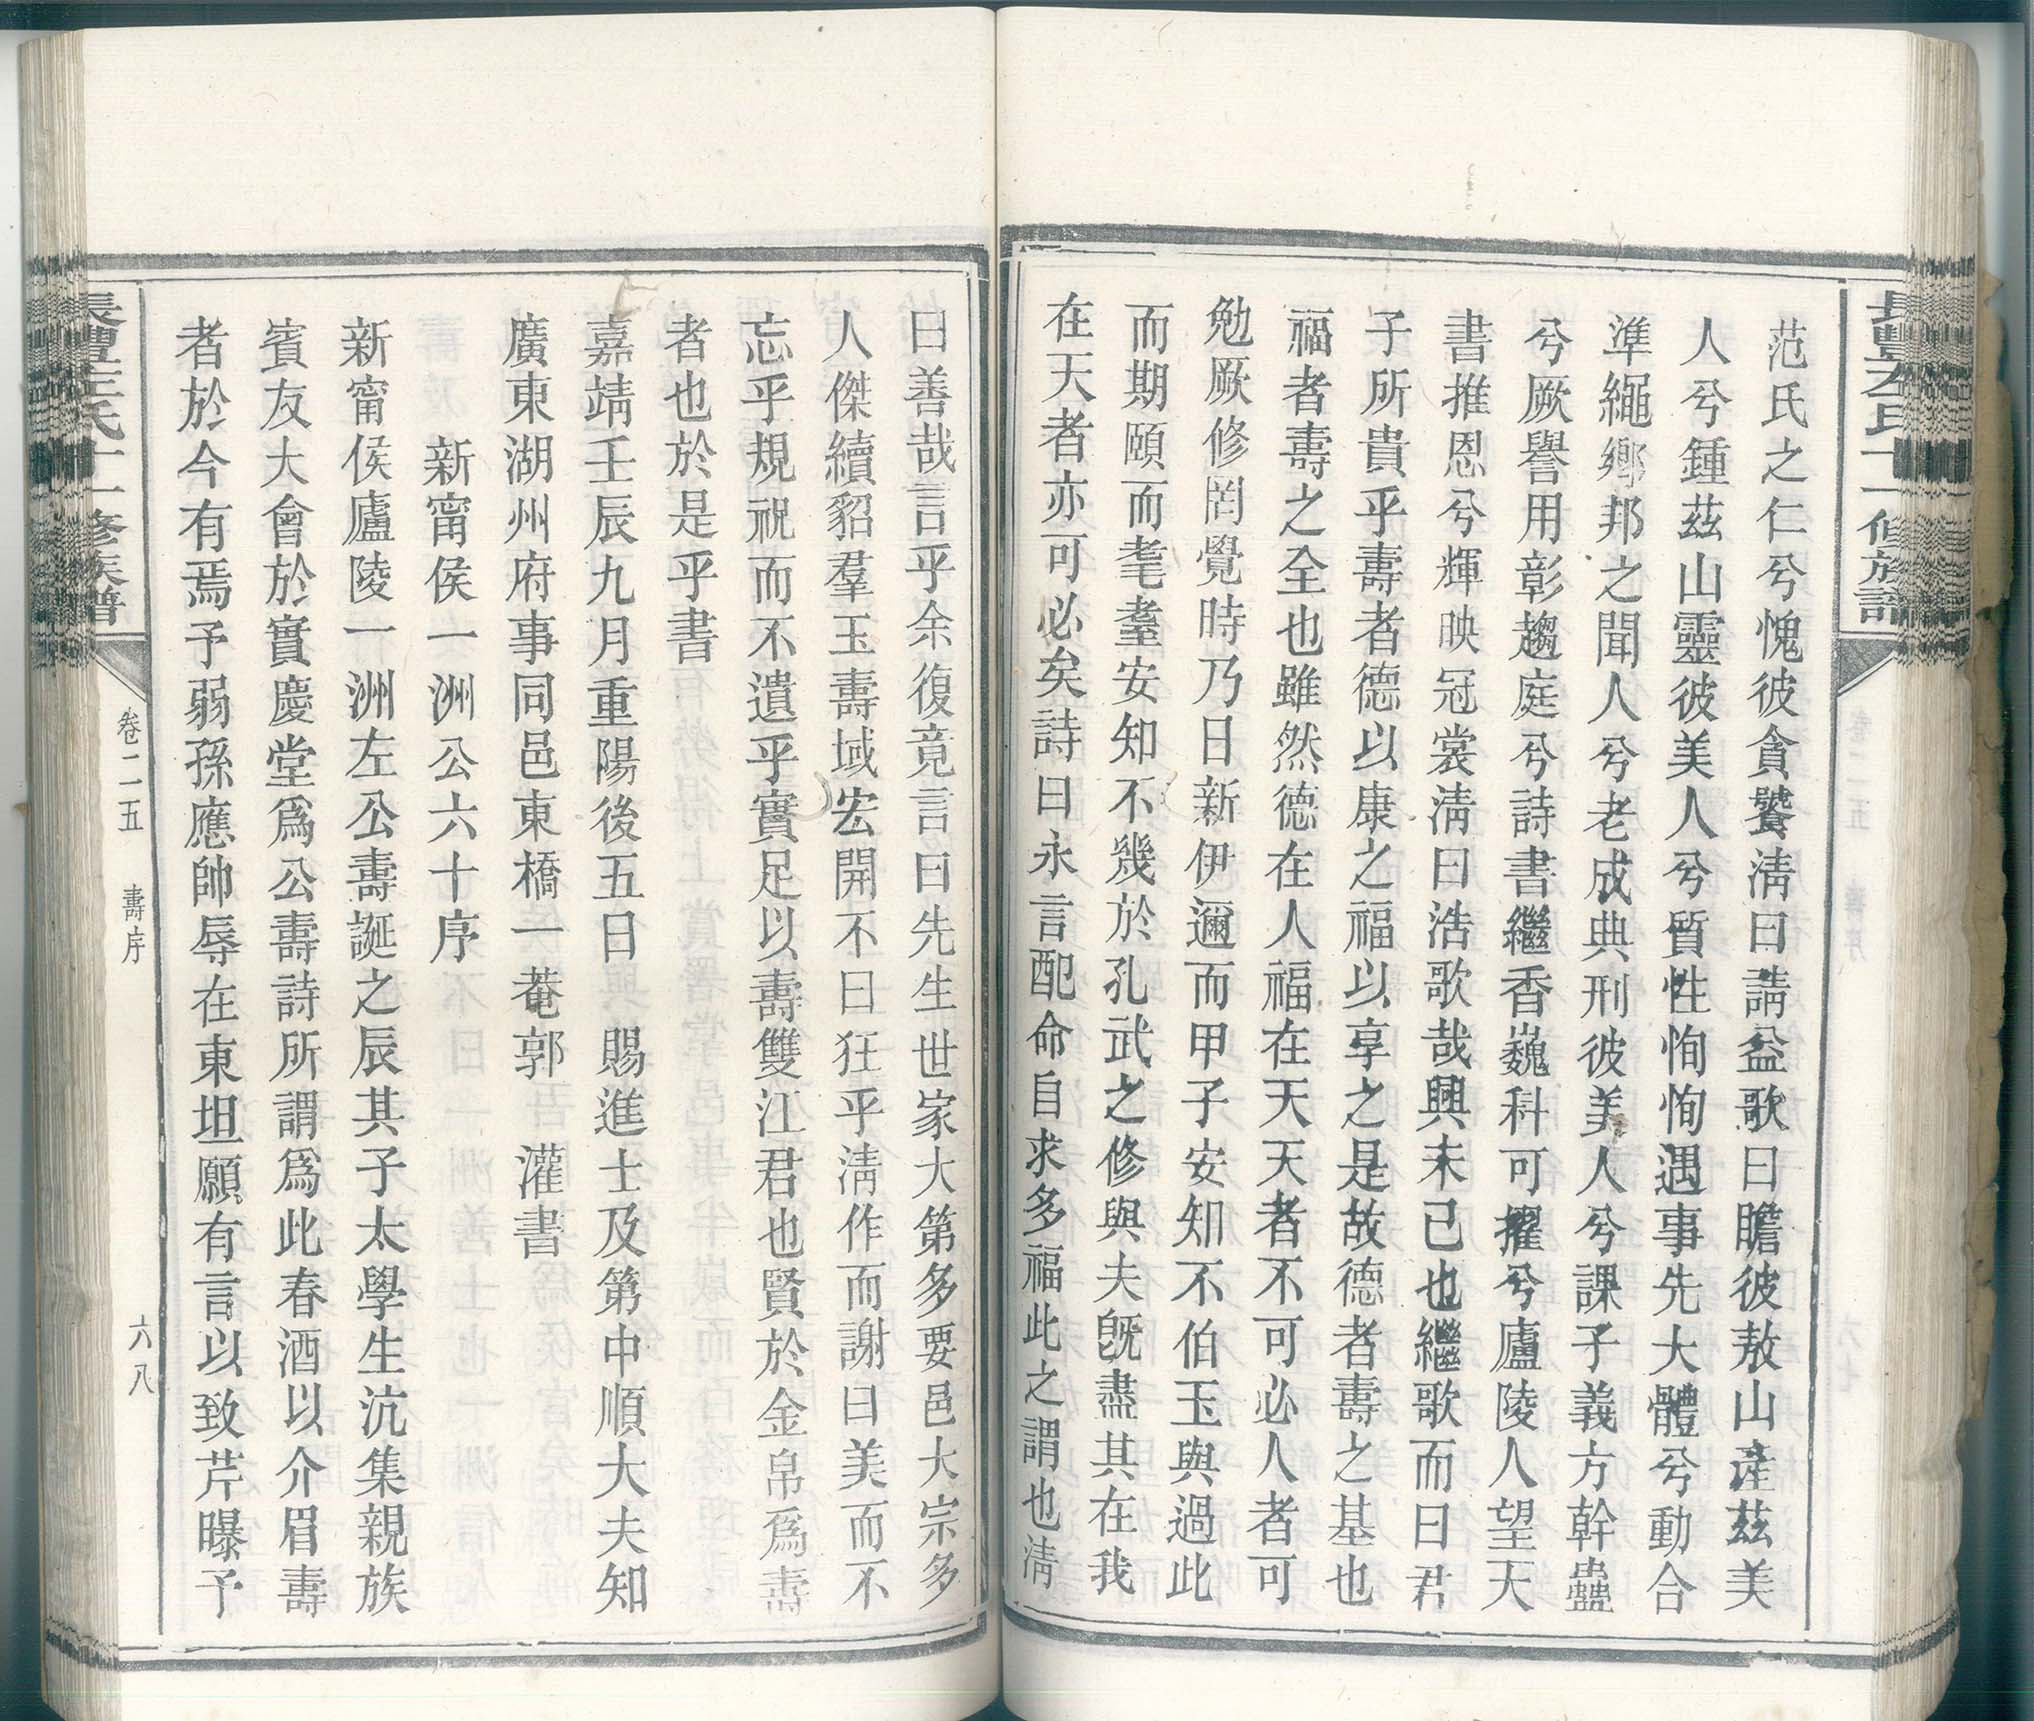 長豐左氏十一修族譜
范氏之仁兮愧彼貪饕淸曰請益歌曰瞻彼敖山產茲美
人兮鍾茲山靈彼美人兮質性恂恂遇事先大體兮動合
準繩鄉邦之聞人兮老成典刑彼美人兮課子義方幹蠱
兮厥譽用彰趨庭兮詩書繼香巍科可擢兮廬陵人望天
書推恩兮輝映冠裳淸曰浩歌哉興未已也繼歌而曰君
子所貴乎壽者德以康之福以享之是故德者壽之基也
福者壽之全也雖然德在人福在天天者不可必人者可
勉厥修罔覺時乃日新伊邇而甲子安知不伯玉與過此
而期頤而耄耋安知不幾於孔武之修與夫既盡其在我
在天者亦可必矣詩曰永言配命自求多福此之謂也淸
曰善哉言乎余復竟言曰先生世家大第多要邑大宗多
人傑續貂羣玉壽域宏開不曰狂乎淸作而謝曰美而不
忘乎規祝而不遺乎實足以壽雙江君也賢於金帛爲壽
者也於是乎書
嘉靖壬辰九月重陽後五日 賜進士及第中順大夫知
廣東湖州府事同邑東橋一菴郭 灌書
新甯侯一洲公六十序
新甯侯廬陵一洲左公壽誕之辰其子太學生沆集親族
賓友大會於實慶堂爲公壽詩所謂爲此春酒以介眉壽
者於今有焉予弱孫應帥辱在東坦願有言以致芹曝予
長豐左氏十一修族譜
卷二五 壽序
六八